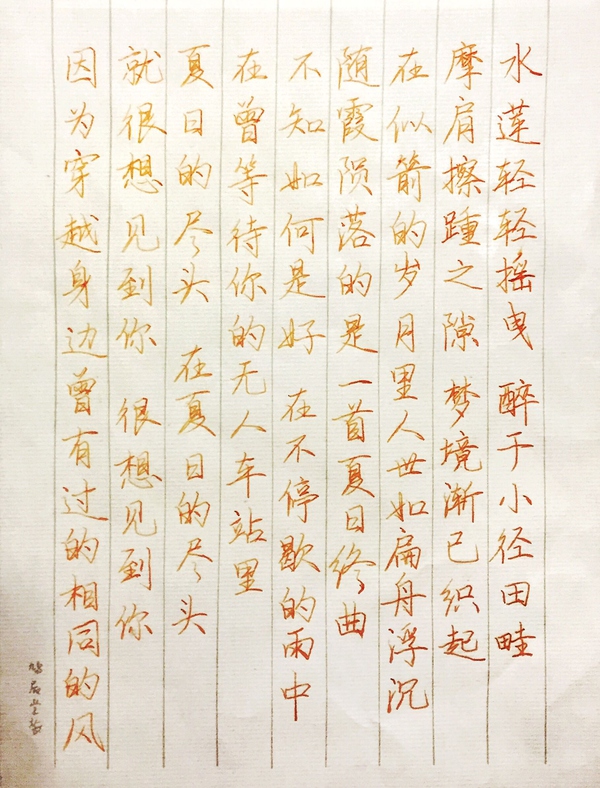 水莲轻轻摇曳 醉于小径田畦
摩肩擦踵之隙 梦境渐已织起
在似箭的岁月里人世如扁舟浮沉
随霞陨落的是一首夏日终曲
不知如何是好 在不停歇的雨中
在曾等待你的无人车站里
夏日的尽头 在夏日的尽头
就很想见到你 很想见到你
因为穿越身边曾有过的相同的风